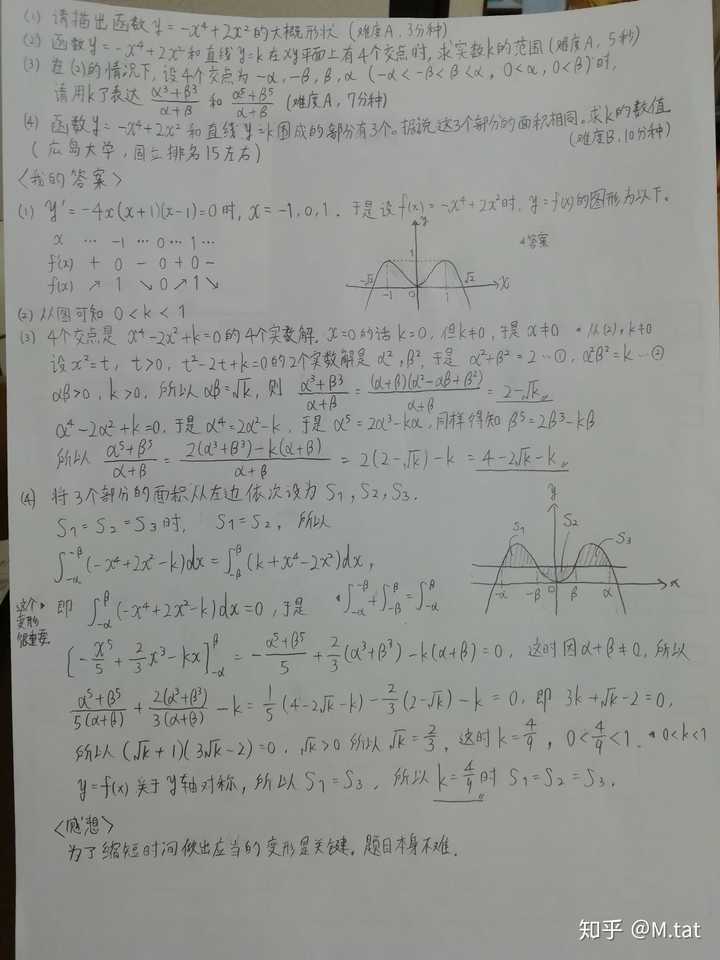 (1) 请描出函数 y = -x⁴ + 2x² 的大概形状 (难度A, 3分种)
(2) 函数 y = -x⁴ + 2x² 和直线 y=k 在xy平面上有4个交点时, 求实数k的范围 (难度A, 5秒)
(3) 在(2)的情况下, 设4个交点为 -α, -β, β, α (-α < -β < β < α, 0<α, 0<β) 时,
请用k了表达 (α³+β³)/(α+β) 和 (α⁵+β⁵)/(α+β) (难度A, 7分种)
(4) 函数 y = -x⁴ + 2x² 和直线 y=k 围成的部分有3个。据说这3个部分的面积相同。求k的数值
(难度B, 10分种)
(広岛大学, 国立排名15左右)
<我的答案>
(1) y' = -4x(x+1)(x-1) = 0 时, x = -1, 0, 1. 于是设 f(x) = -x⁴+2x² 时, y=f(x) 的图形为以下。
x … -1 … 0 … 1 …
f(x) + 0 - 0 + 0 -
f(x) ↗ 1 ↘ 0 ↗ 1 ↘
y
答案
1
-√2 -1 0 1 √2 x
(2) 从图可知 0 < k < 1
(3) 4个交点是 x⁴-2x²+k=0 的4个实数解. x=0的话 k=0, 但k≠0, 于是 x≠0 • 从(2), k≠0
设 x²=t, t>0, t²-2t+k=0 的2个实数解是 α², β², 于是 α²+β²=2 …①, α²β²=k …②
αβ>0, k>0, 所以 αβ=√k, 则 (α³+β³)/(α+β) = (α+β)(α²-αβ+β²)/(α+β) = 2-√k
α⁴-2α²+k=0, 于是 α⁴=2α²-k, 于是 α⁵=2α³-kα, 同样得知 β⁵=2β³-kβ
所以 (α⁵+β⁵)/(α+β) = (2(α³+β³)-k(α+β))/(α+β) = 2(2-√k)-k = 4-2√k-k
(4) 将3个部分的面积从左边依次设为 S₁, S₂, S₃.
S₁=S₂=S₃时, S₁=S₂, 所以
∫_{-α}^{-β}(-x⁴+2x²-k)dx = ∫_{-β}^{β}(k+x⁴-2x²)dx,
y
S₁ S₂ S₃
-α -β 0 β α x
这个
变形
很重要
即 ∫_{-α}^{β}(-x⁴+2x²-k)dx=0, 于是 • ∫_{-α}^{-β}+∫_{-β}^{β}=∫_{-α}^{β}
[-x⁵/5 + 2/3 x³ - kx]_{-α}^{β} = -(α⁵+β⁵)/5 + 2/3(α³+β³) - k(α+β) = 0, 这时因 α+β≠0, 所以
(α⁵+β⁵)/(5(α+β)) + 2(α³+β³)/(3(α+β)) - k = 1/5(4-2√k-k) - 2/3(2-√k) - k = 0, 即 3k+√k-2=0,
所以 (√k+1)(3√k-2)=0, √k>0 所以 √k=2/3, 这时 k=4/9, 0<4/9<1. • 0<k<1
y=f(x) 关于y轴对称, 所以 S₁=S₃, 所以 k=4/9 时 S₁=S₂=S₃.
<感想>
为了缩短时间做出应当的变形是关键。题目本身不难.
知乎 @M.tat